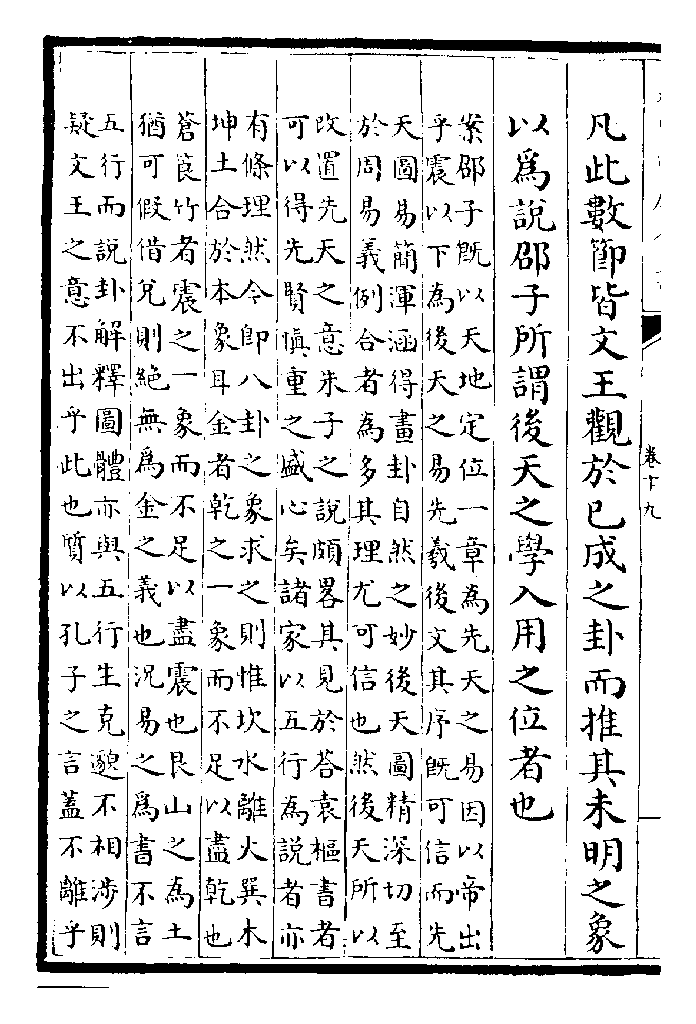 凡此數節皆文王觀於已成之卦而推其未明之象
以為說邵子所謂後天之學入用之位者也
案邵子既以天地定位一章為先天之易因以帝出
乎震以下為後天之易先羲後文其序既可信而先
天圖易簡渾涵得畫卦自然之妙後天圖精深切至
於周易義例合者為多其理尤可信也然後天所以
改置先天之意朱子之說頗畧其見於荅袁樞書者
可以得先賢慎重之盛心矣諸家以五行為說者亦
有條理然今即八卦之象求之則惟坎水離火巽木
坤土合於本象耳金者乾之一象而不足以盡乾也
蒼筤竹者震之一象而不足以盡震也艮山之為土
猶可假借兌則絶無為金之義也況易之為書不言
五行而說卦解釋圖體亦與五行生克邈不相涉則
疑文王之意不出乎此也質以孔子之言蓋不離乎
卷十九